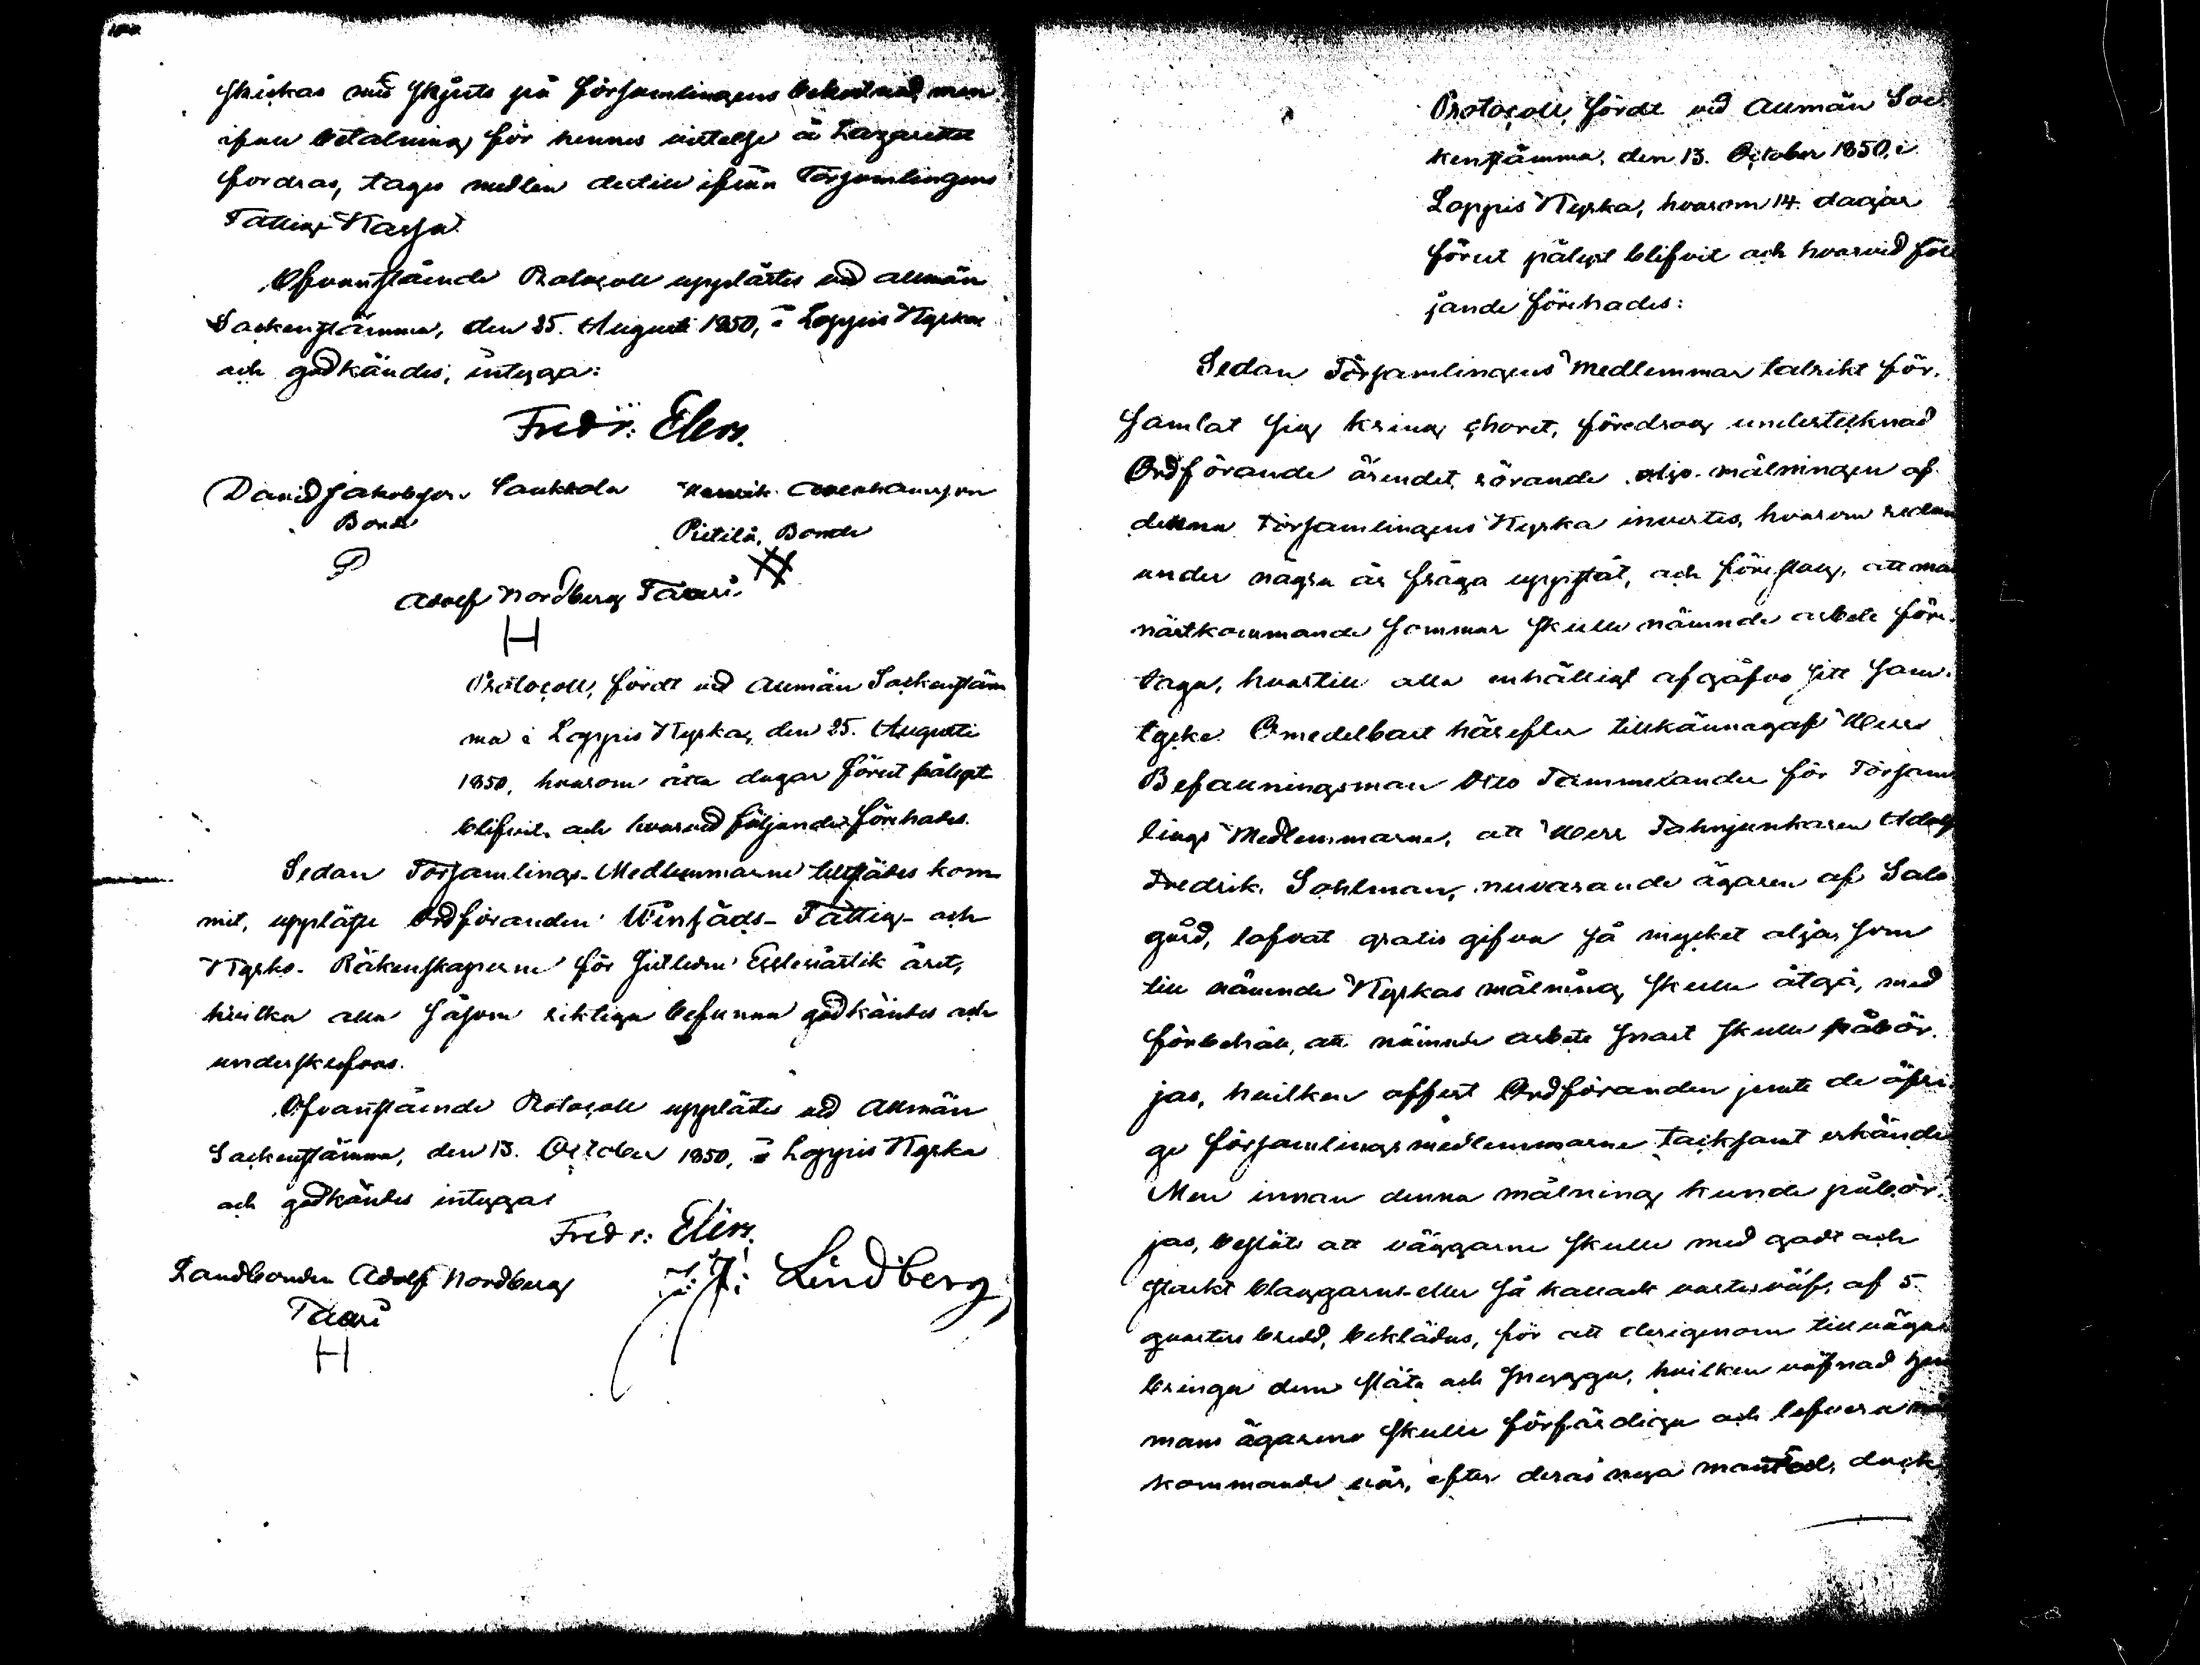 skickas med skjuts på Församlingens bekostnad, men
ifall betalning för hennes vistelse å Lazarettet
fordras, tages medlen dertill ifrån Församlingens
Fattigs Kassa.
Ofvanstående Protocoll upplästes vid allmän
Sockenstämma, den 25. Augusti 1850, i Loppis Kyrka
och godkändes, intyga:
Fredr: Elers.
David Jakobsson Saukkola Henrik
Bonde Pietilä, Bonde
Adolf Nordberg Taari
H
Protocoll, fördt vid Allmän Sockenstäm
ma i Loppis Kyrka, den 25. Augusti
1850, hvarom åtta dagar förut pålyst
blifvit och hvarvid följande förehades.
Sedan Församlings-Medlemmarne tillstädes kom
mit, uppläste Ordföranden Wårfåds- Fattig- och
Kyrko- Räkenskaperne för sistledne Ecclesiastik året,
hvilka alla såsom riktiga befunna godkändes och
underskrefvos.
Ofvanstående Protocoll upplästes vid Allmän
Sockenstämma, den 13. October 1850, i Loppis Kyrka
och godkändes intygas
Fredr: Elers.
Landbonden Adolf Nordberg Lindberg
Taari
H
Protocoll, fördt vid Allmän Soc
kenstämma, den 13. October 1850, i
Loppis Kyrka, hvarom 14. dagar
förut pålyst blifvit och hvarvid föl
jande förehades:
Sedan Församlingens Medlemmar talrikt för.
samlat sig kring choret, föredrog undertecknad
Ordförande ärendet rörande oljo-målningen af
denna Församlingens Kyrka invertes, hvarom redan
under några år fråga uppstått, och föreslog, att man
nästkommande sommar skulle nämnde arbete före.
taga, hvartill alla enhälligt afgåfvo sitt sam.
tycke. Omedelbart härefter tillkännagaf Herr
Befallningsman Otto Tammelander för Försam
lings Medlemmarne, att Herr Fahnjunkaren Adolf
Fredrik Sohlman, nuvarande ägaren af Salo
gård, lofvat gratis gifva så mycket olja, som
till nämnde Kyrkas målning skulle åtgå, med
förbehåll, att nämnde arbete snart skulle påbör.
jas, hvilken offert Ordföranden jemte de öfri
ge församlingsmedlemmarne tacksamt erkände
Men innan denna målning kunde påbör.
jas, beslöts att väggarne skulle med godt och
starkt blaggarns eller så kallade väf, af 5.
qvarters bredd, beklädas, för att derigenom till väga
bringa dem släta och snygga, hvilken väfnad hem
mans ägarene skulle förfärdiga och lefverera
kommande vår, efter deras nya mantal, dock